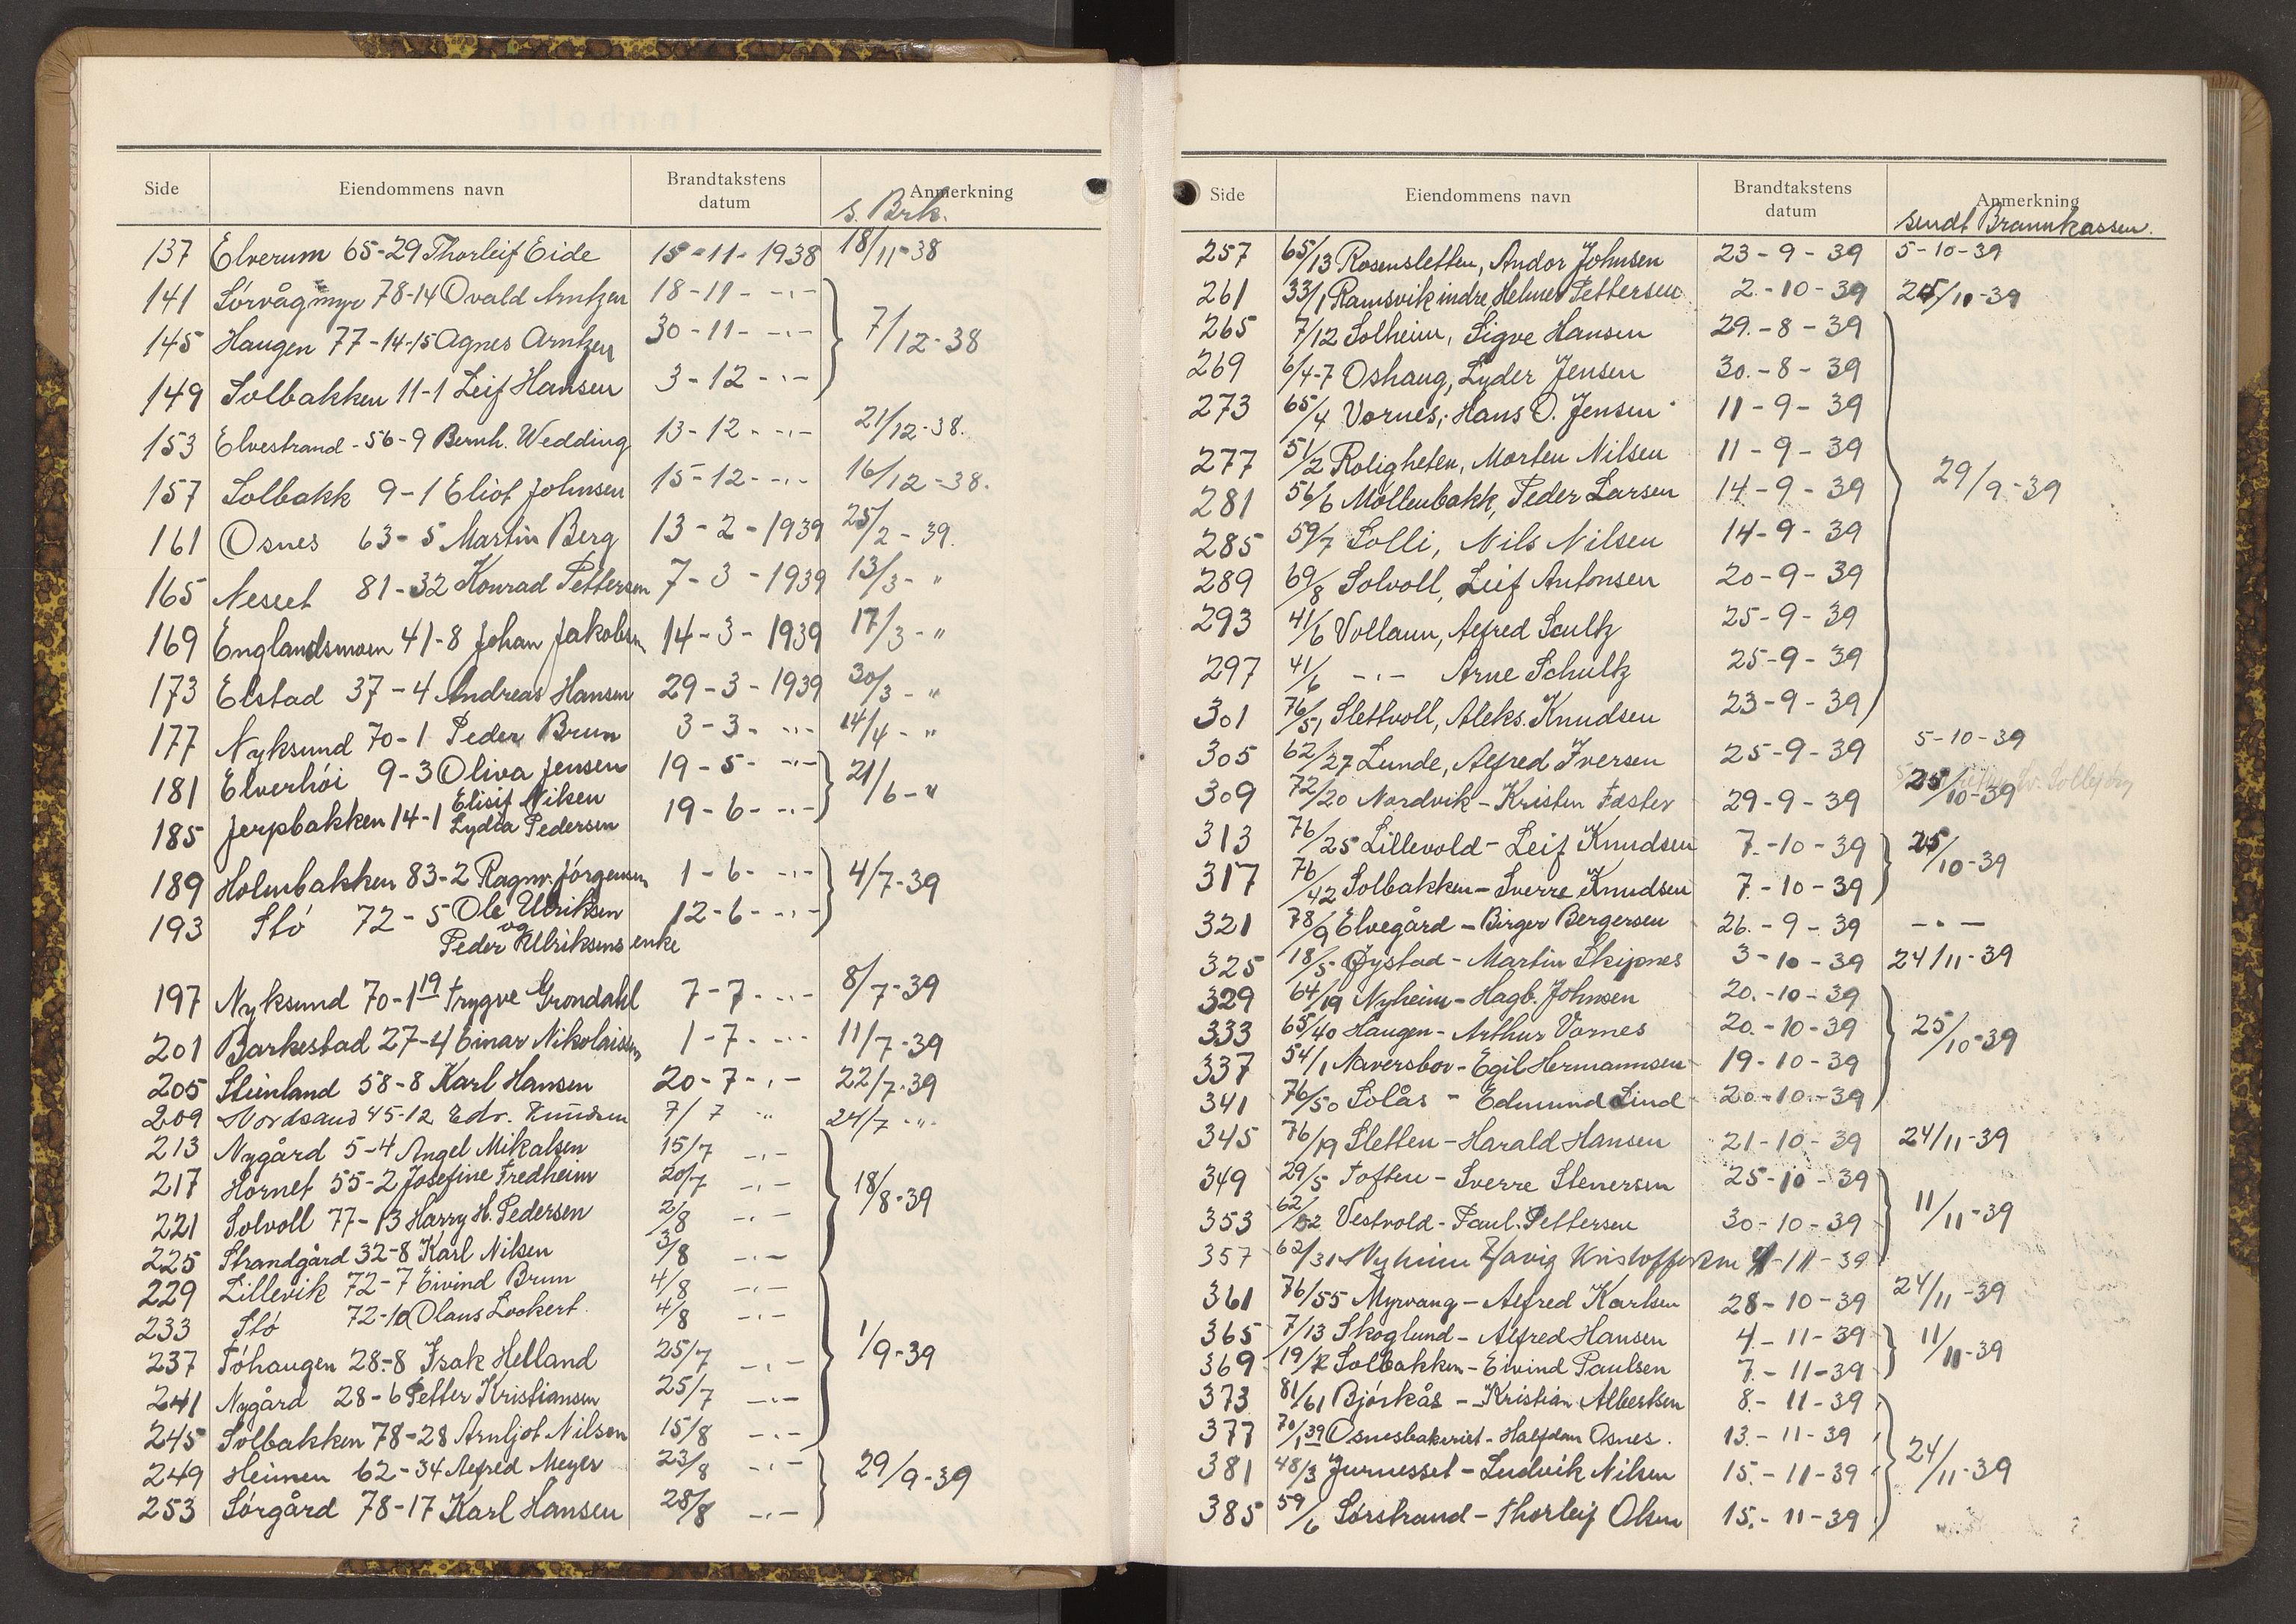 Side Eiendommens navn Brandtakstens datum Anmerkning
s. Brk.
137 Elverum 65-29 Thorleif Eide 15-11-1938 18/11-38
141 Sørvågmyr 78-14 Ovald Arntzen 18-11- -"-
145 Haugen 77-14-15 Agnes Arntzen 30-11- -"- 7/12-38
149 Solbakken 11-1 Leif Hansen 3-12- -"-
153 Elvestrand-56-9 Bernh. Wedding 13-12- -"- 21/12-38.
157 Solbakk 9-1 Eliot Johnsen 15-12- -"- 16/12-38.
161 Osnes 63-5 Martin Berg 13-2-1939 25/2-39.
165 Nesset 81-32 Konrad Pettersen 7-3-1939 13/3- "
169 Englandsmoen 41-8 Johan Jakobsen 14-3-1939 17/3- "
173 Elstad 37-4 Andreas Hansen 29-3-1939 30/3- "
177 Nyksund 70-1 Peder Brun 3-3- -"- 14/4- "
181 Elverhöi 9-3 Oliva Jensen 19-5- -"- 21/6- "
185 Jerpbakken 14-1 Elisif Nilsen Lydia Pedersen 19-6- -"-
189 Holmbakken 83-2 Ragnv. Jörgensen 1-6- -"- 4/7-39
193 Stö 72-5 Ole Ulriksen 12-6- -"-
og Peder Ulriksens enke
197 Nyksund 70-1 19 Trygve Gröndahl 7-7- -"- 8/7-39
201 Barkestad 27-4 Einar Nikolaisen 1-7- -"- 11/7-39
205 Steinland 58-8 Karl Hansen 20-7- -"- 22/7-39
209 Nordsand 45-12 Edv. Knudsen 7/7 -"- 24/7 -"-
213 Nygård 5-4 Angel Mikalsen 15/7 -"-
217 Hornet 55-2 Josefine Fredheim 20/7 -"- 18/8-39
221 Solvoll 77-13 Harry H. Pedersen 2/8 -"-
225 Strandgård 32-8 Karl Nilsen 3/8 -"-
229 Lillevik 72-7 Eivind Brun 4/8 -"-
233 Stö 72-10 Olaus Lockert 4/8 -"-
237 Töhaugen 28-8 Isak Helland 25/7 -"- 1/9-39
241 Nygård 28-6 Petter Kristiansen 25/7 -"-
245 Solbakken 78-28 Arnljot Nilsen 15/8 -"-
249 Heimen 62-34 Alfred Meyer 23/8 -"- 29/9-39
253 Sørgård 78-17 Karl Hansen 28/8 -"-
Side Eiendommens navn Brandtakstens datum Anmerkning
sendt Brannkassen.
257 65/13 Rosensletten, Andor Johnsen 23-9-39 5-10-39
261 33/1 Ramsvik indre, Helmer Pettersen 2.-10-39 25/10-39
265 7/12 Solheim, Sigve Hansen 29.-8-39
269 6/4-7 Oshaug, Lyder Jensen 30.-8-39
273 65/4 Vornes, Hans O. Jensen 11-9-39
277 51/2 Roligheten, Morten Nilsen 11-9-39 29/9-39
281 56/6 Möllenbakk, Peder Larsen 14-9-39
285 59/7 Solli, Nils Nilsen 14-9-39
289 69/8 Solvoll, Leif Antonsen 20-9-39
293 41/6 Vollann, Alfred Scultz 25-9-39
297 41/6 -"- Arne Schultz 25-9-39
301 76/51 Slettvoll, Aleks. Knudsen 23-9-39
305 62/27 Lunde, Alfred Iversen 25-9-39 5-10-39
309 72/20 Nordvik - Kristen Fæster 29-9-39 25/10-39
313 76/25 Lillevold - Leif Knudsen 7.-10-39 25/10-39
317 76/42 Solbakken - Sverre Knudsen 7.-10-39
321 78/9 Elvegård - Birger Bergersen 26.-9-39 -"-
325 18/5 Øystad - Martin Skipnes 3-10-39 24/11-39
329 64/19 Nyheim - Hagb. Johnsen 20.-10-39
333 65/40 Haugen - Arthur Vornes 20.-10-39 25/10-39
337 54/1 Naversbor - Egil Hermannsen 19-10-39
341 76/50 Solås - Edmund Lind 20-10-39
345 76/19 Sletten - Harald Hansen 21-10-39 24/11-39
349 29/5 Toften - Sverre Stenersen 25-10-39
353 62/32 Vestvold - Paul. Pettersen 30-10-39 11/11-39
357 62/31 Nyheim Havig Kristoffersen 4-11-39
361 76/55 Myrvang - Alfred Karlsen 28-10-39 24/11-39
365 7/13 Skoglund - Alfred Hansen 4.-11-39 11/11-39
369 19/2 Solbakken - Eivind Paulsen 7.-11-39
373 81/61 Bjørkås - Kristian Albertsen 8.-11-39
377 70/1 39 Osnesbakeriet - Halfdan Osnes. 13.-11-39
381 48/3 Jurnesset - Ludvik Nilsen 15.-11-39 24/11-39
385 59/6 Sørstrand - Thorleif Olsen 15.-11-39